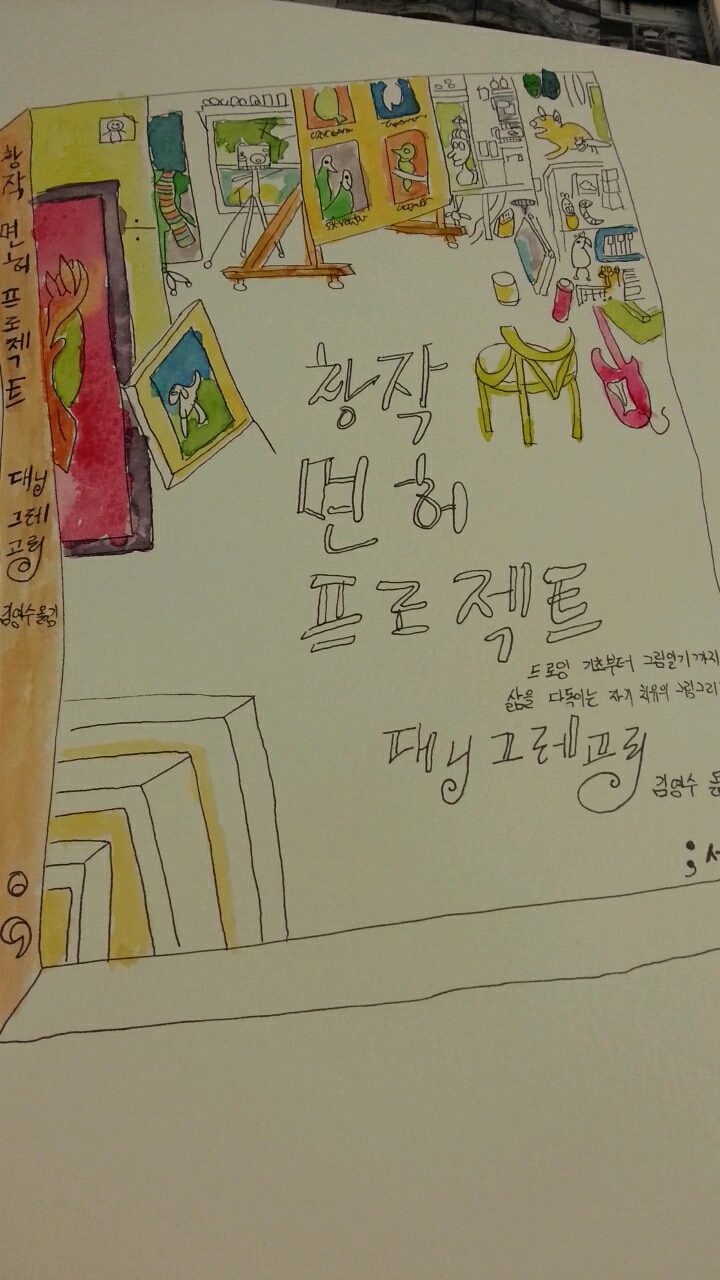 창작
면허
프로젝트
대니
그레
고리
김영수 옮김
창작
면허
프로젝트
드로잉 기초부터 그림일기까지
삶을 다독이는 자기 치유의 그림그리
대니 그레고리
김영수 옮
; 서